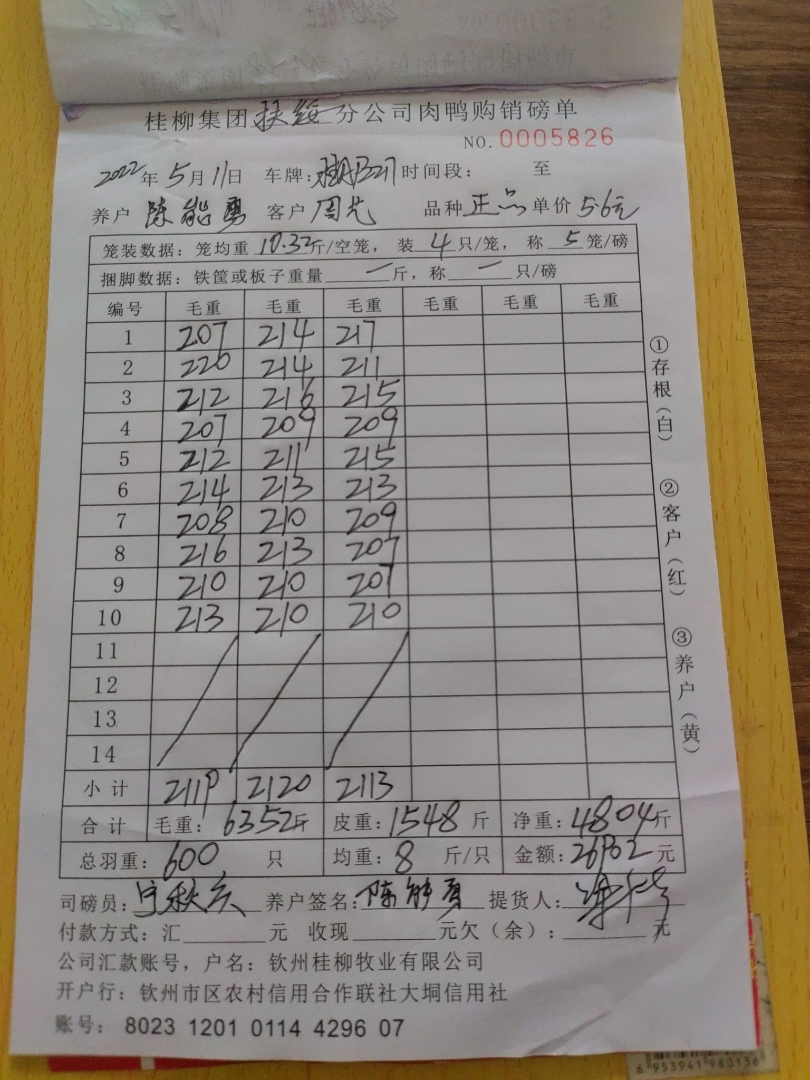 桂柳集团扶绥分公司肉鸭购销磅单
NO. 0005826
2022年5月11日 车牌: 时间段: 至
养户 陈能勇 客户 周光 品种 正品 单价 5.6元
笼装数据: 笼均重 10.32斤/空笼, 装 4只/笼, 称 5笼/磅
捆脚数据: 铁筐或板子重量 一斤, 称 一只/磅
编号 毛重 毛重 毛重 毛重 毛重 毛重
1 207 214 217
2 220 214 211
3 212 216 215
4 207 209 209
5 212 211 215
6 214 213 213
7 208 210 209
8 216 213 207
9 210 210 207
10 213 210 210
11
12
13
14
小计 2119 2120 2113
合计 毛重: 6352斤 皮重: 1548斤 净重: 4804斤
总羽重: 600 只 均重: 8 斤/只 金额: 26902元
司磅员: 养户签名: 陈能勇 提货人:
付款方式: 汇 元 收现 元欠(余): 元
公司汇款账号, 户名: 钦州桂柳牧业有限公司
开户行: 钦州市区农村信用合作联社大垌信用社
账号: 8023 1201 0114 4296 07
①存根(白)
②客户(红)
③养户(黄)
6 953941 980136